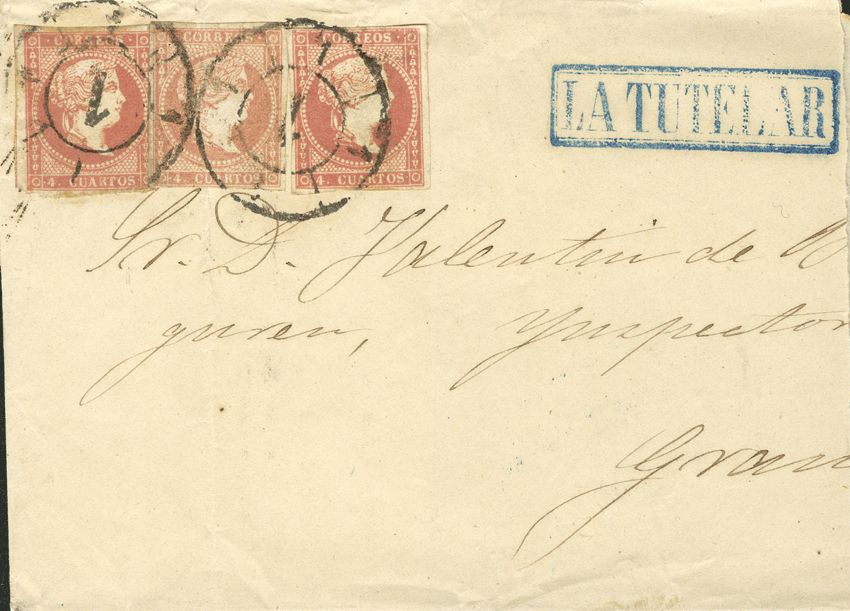 CORREOS CORREOS CORREOS
1 1
4. CUARTOS 4. CUARTOS 4. CUARTOS
LA TUTELAR
Sr. D. Valentin de
guren, Ynspector
Gran